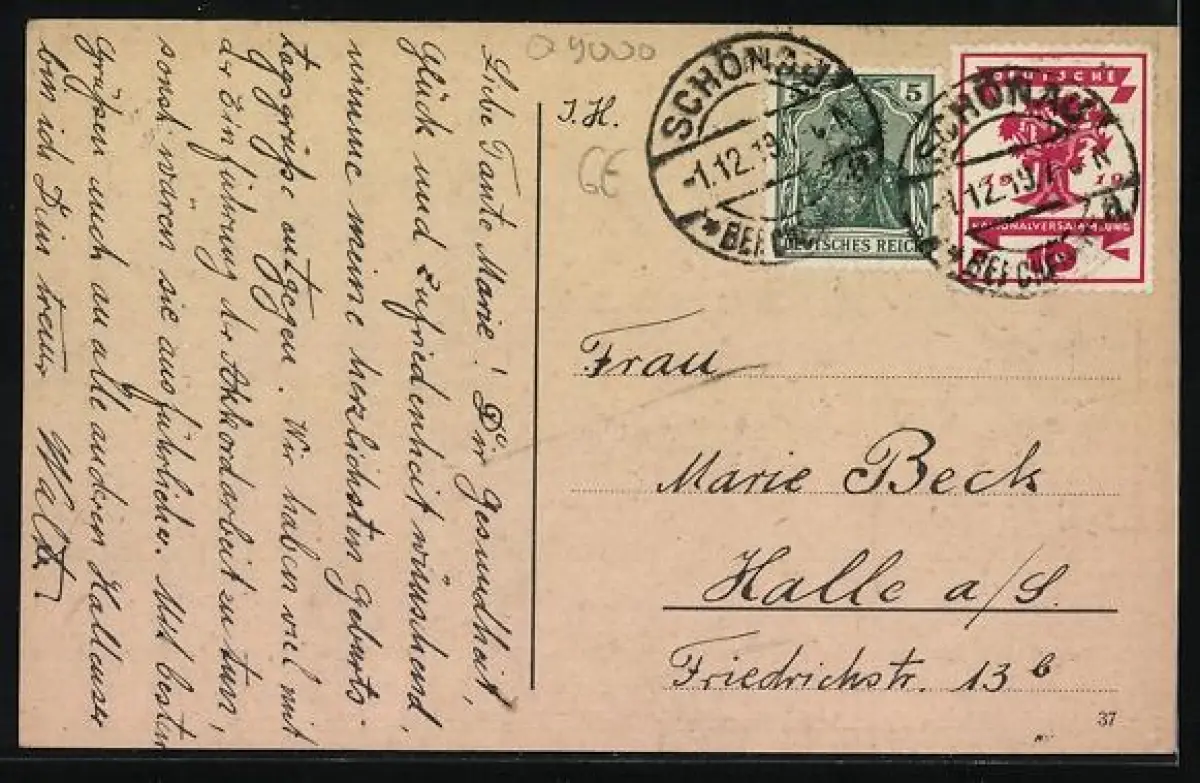 Liebe Tante Marie! Dir Gesundheit,
Glück und Zufriedenheit wünschend,
nimme meine herzlichsten Geburts-
tagsgrüße entgegen. Wir haben viel mit
der Einführung der Akkordarbeit zu tun,
sonst wären sie ausführlicher. Mit besten
Grüßen auch an alle andern Hallenser
bin ich Dein treuer Walter
O 9000
J. H.
GE
SCHÖNAU
-1.12.19
BELCHEN
5
DEUTSCHES REICH
SCHÖNAU
1.12.19
BELCHEN
DEUTSCHE
19 19
NATIONALVERSAMMLUNG
10
Frau
Marie Beck
Halle a/S.
Friedrichstr. 13 b
37